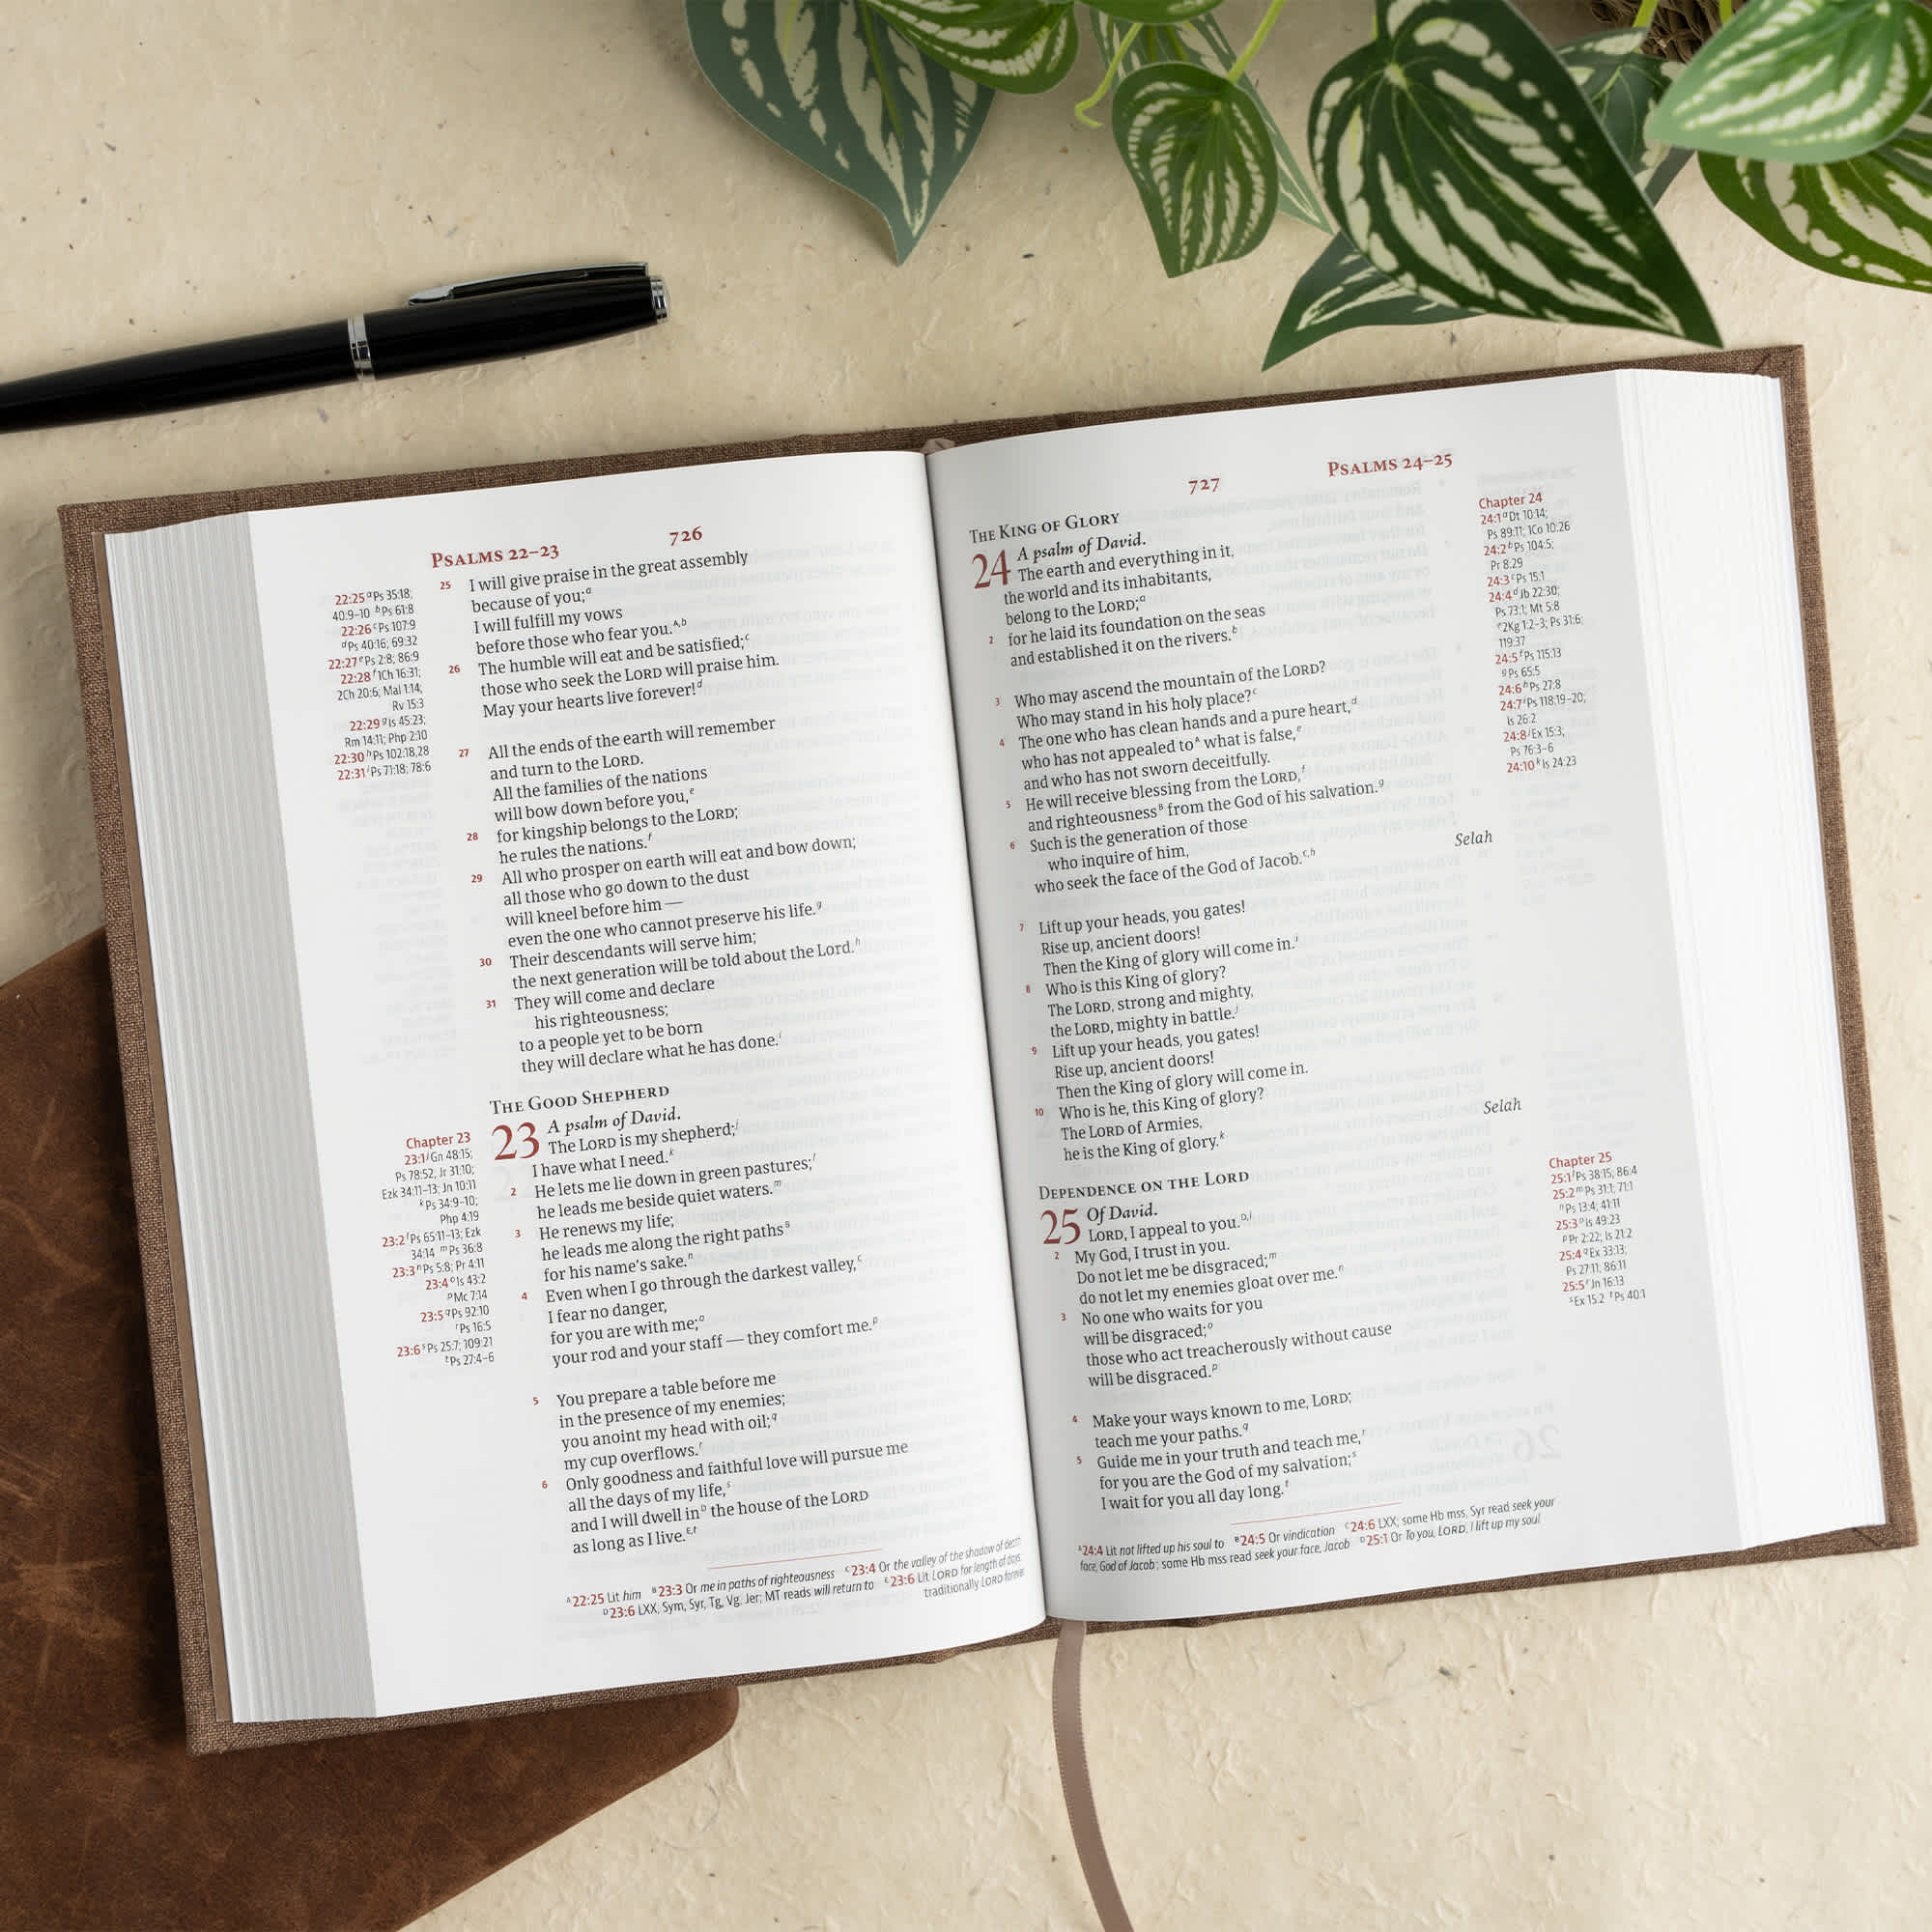 PSALMS 22–23
726
22:25 a Ps 35:18;
40:9–10 b Ps 61:8
22:26 c Ps 107:9
d Ps 40:16; 69:32
22:27 e Ps 2:8; 86:9
22:28 f 1Ch 16:31;
2Ch 20:6; Mal 1:14;
Rv 15:3
22:29 g Is 45:23;
Rm 14:11; Php 2:10
22:30 h Ps 102:18,28
22:31 i Ps 71:18; 78:6
25 I will give praise in the great assembly
because of you;a
I will fulfill my vows
before those who fear you.A,b
26 The humble will eat and be satisfied;c
those who seek the LORD will praise him.
May your hearts live forever!d
27 All the ends of the earth will remember
and turn to the LORD.
All the families of the nations
will bow down before you,e
28 for kingship belongs to the LORD;
he rules the nations.f
29 All who prosper on earth will eat and bow down;
all those who go down to the dust
will kneel before him —
even the one who cannot preserve his life.g
30 Their descendants will serve him;
the next generation will be told about the Lord.h
31 They will come and declare
his righteousness;
to a people yet to be born
they will declare what he has done.i
THE GOOD SHEPHERD
Chapter 23
23:1 j Gn 48:15;
Ps 78:52, Jr 31:10;
Ezk 34:11–13; Jn 10:11
k Ps 34:9–10;
Php 4:19
23:2 l Ps 65:11–13; Ezk
34:14 m Ps 36:8
23:3 n Ps 5:8; Pr 4:11
23:4 o Is 43:2
p Mc 7:14
23:5 q Ps 92:10
r Ps 16:5
23:6 s Ps 25:7; 109:21
t Ps 27:4–6
23 A psalm of David.
The LORD is my shepherd;j
I have what I need.k
2 He lets me lie down in green pastures;l
he leads me beside quiet waters.m
3 He renews my life;
he leads me along the right pathsB
for his name's sake.n
4 Even when I go through the darkest valley,C
I fear no danger,
for you are with me;o
your rod and your staff — they comfort me.p
5 You prepare a table before me
in the presence of my enemies;
you anoint my head with oil;q
my cup overflows.r
6 Only goodness and faithful love will pursue me
all the days of my life,s
and I will dwell inD the house of the LORD
as long as I live.E,t
A 22:25 Lit him B 23:3 Or me in paths of righteousness C 23:4 Or the valley of the shadow of death
D 23:6 LXX, Sym, Syr, Tg, Vg, Jer; MT reads will return to E 23:6 Lit LORD for length of days;
traditionally LORD forever
727
PSALMS 24–25
THE KING OF GLORY
24 A psalm of David.
The earth and everything in it,
the world and its inhabitants,
belong to the LORD;a
2 for he laid its foundation on the seas
and established it on the rivers.b
3 Who may ascend the mountain of the LORD?
Who may stand in his holy place?c
4 The one who has clean hands and a pure heart,d
who has not appealed toA what is false,e
and who has not sworn deceitfully.
5 He will receive blessing from the LORD,f
and righteousnessB from the God of his salvation.g
6 Such is the generation of those
who inquire of him,
who seek the face of the God of Jacob.C,h Selah
7 Lift up your heads, you gates!
Rise up, ancient doors!
Then the King of glory will come in.i
8 Who is this King of glory?
The LORD, strong and mighty,
the LORD, mighty in battle.j
9 Lift up your heads, you gates!
Rise up, ancient doors!
Then the King of glory will come in.
10 Who is he, this King of glory?
The LORD of Armies,
he is the King of glory.k Selah
Chapter 24
24:1 a Dt 10:14;
Ps 89:11; 1Co 10:26
24:2 b Ps 104:5;
Pr 8:29
24:3 c Ps 15:1
24:4 d Jb 22:30;
Ps 73:1; Mt 5:8
e 2Kg 1:2–3; Ps 31:6;
119:37
24:5 f Ps 115:13
g Ps 65:5
24:6 h Ps 27:8
24:7 i Ps 118:19–20;
Is 26:2
24:8 j Ex 15:3;
Ps 76:3–6
24:10 k Is 24:23
DEPENDENCE ON THE LORD
25 Of David.
LORD, I appeal to you.D,l
2 My God, I trust in you.
Do not let me be disgraced;m
do not let my enemies gloat over me.n
3 No one who waits for you
will be disgraced;o
those who act treacherously without cause
will be disgraced.p
4 Make your ways known to me, LORD;
teach me your paths.q
5 Guide me in your truth and teach me,r
for you are the God of my salvation;s
I wait for you all day long.t
Chapter 25
25:1 l Ps 38:15; 86:4
25:2 m Ps 31:1; 71:1
n Ps 13:4; 41:11
25:3 o Is 49:23
p Pr 2:22; Is 21:2
25:4 q Ex 33:13;
Ps 27:11; 86:11
25:5 r Jn 16:13
s Ex 15:2 t Ps 40:1
A 24:4 Lit not lifted up his soul to B 24:5 Or vindication C 24:6 LXX; some Hb mss, Syr read seek your
face, God of Jacob; some Hb mss read seek your face, Jacob D 25:1 Or To you, LORD, I lift up my soul